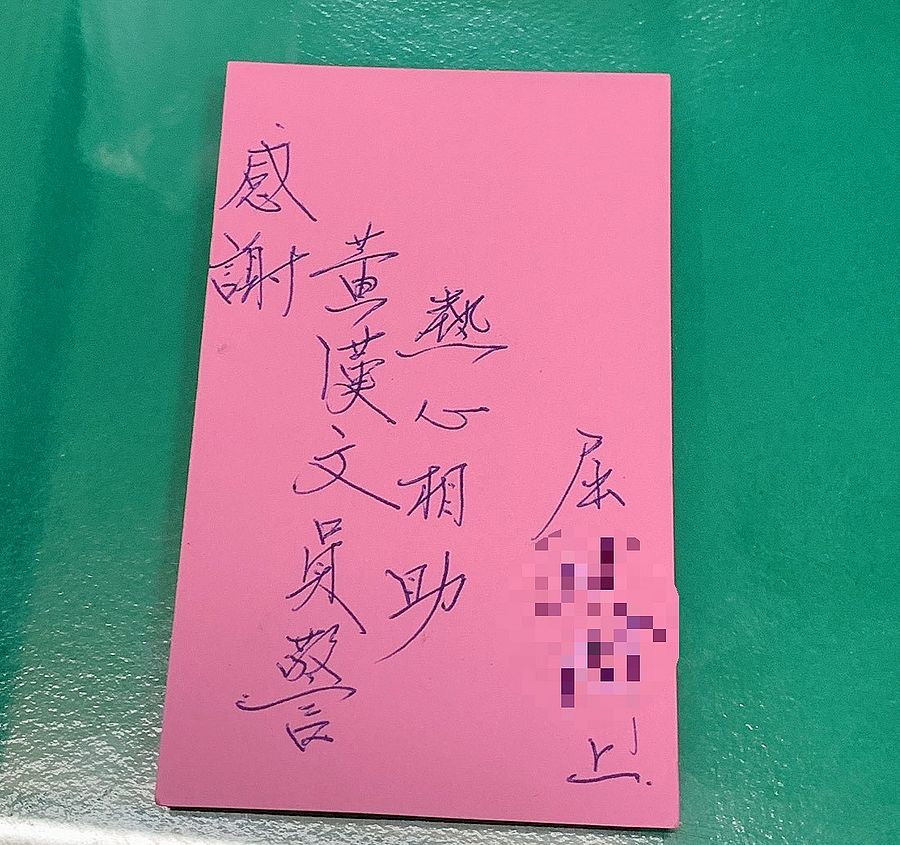 感謝
黃漢文員警
熱心相助
屈
上